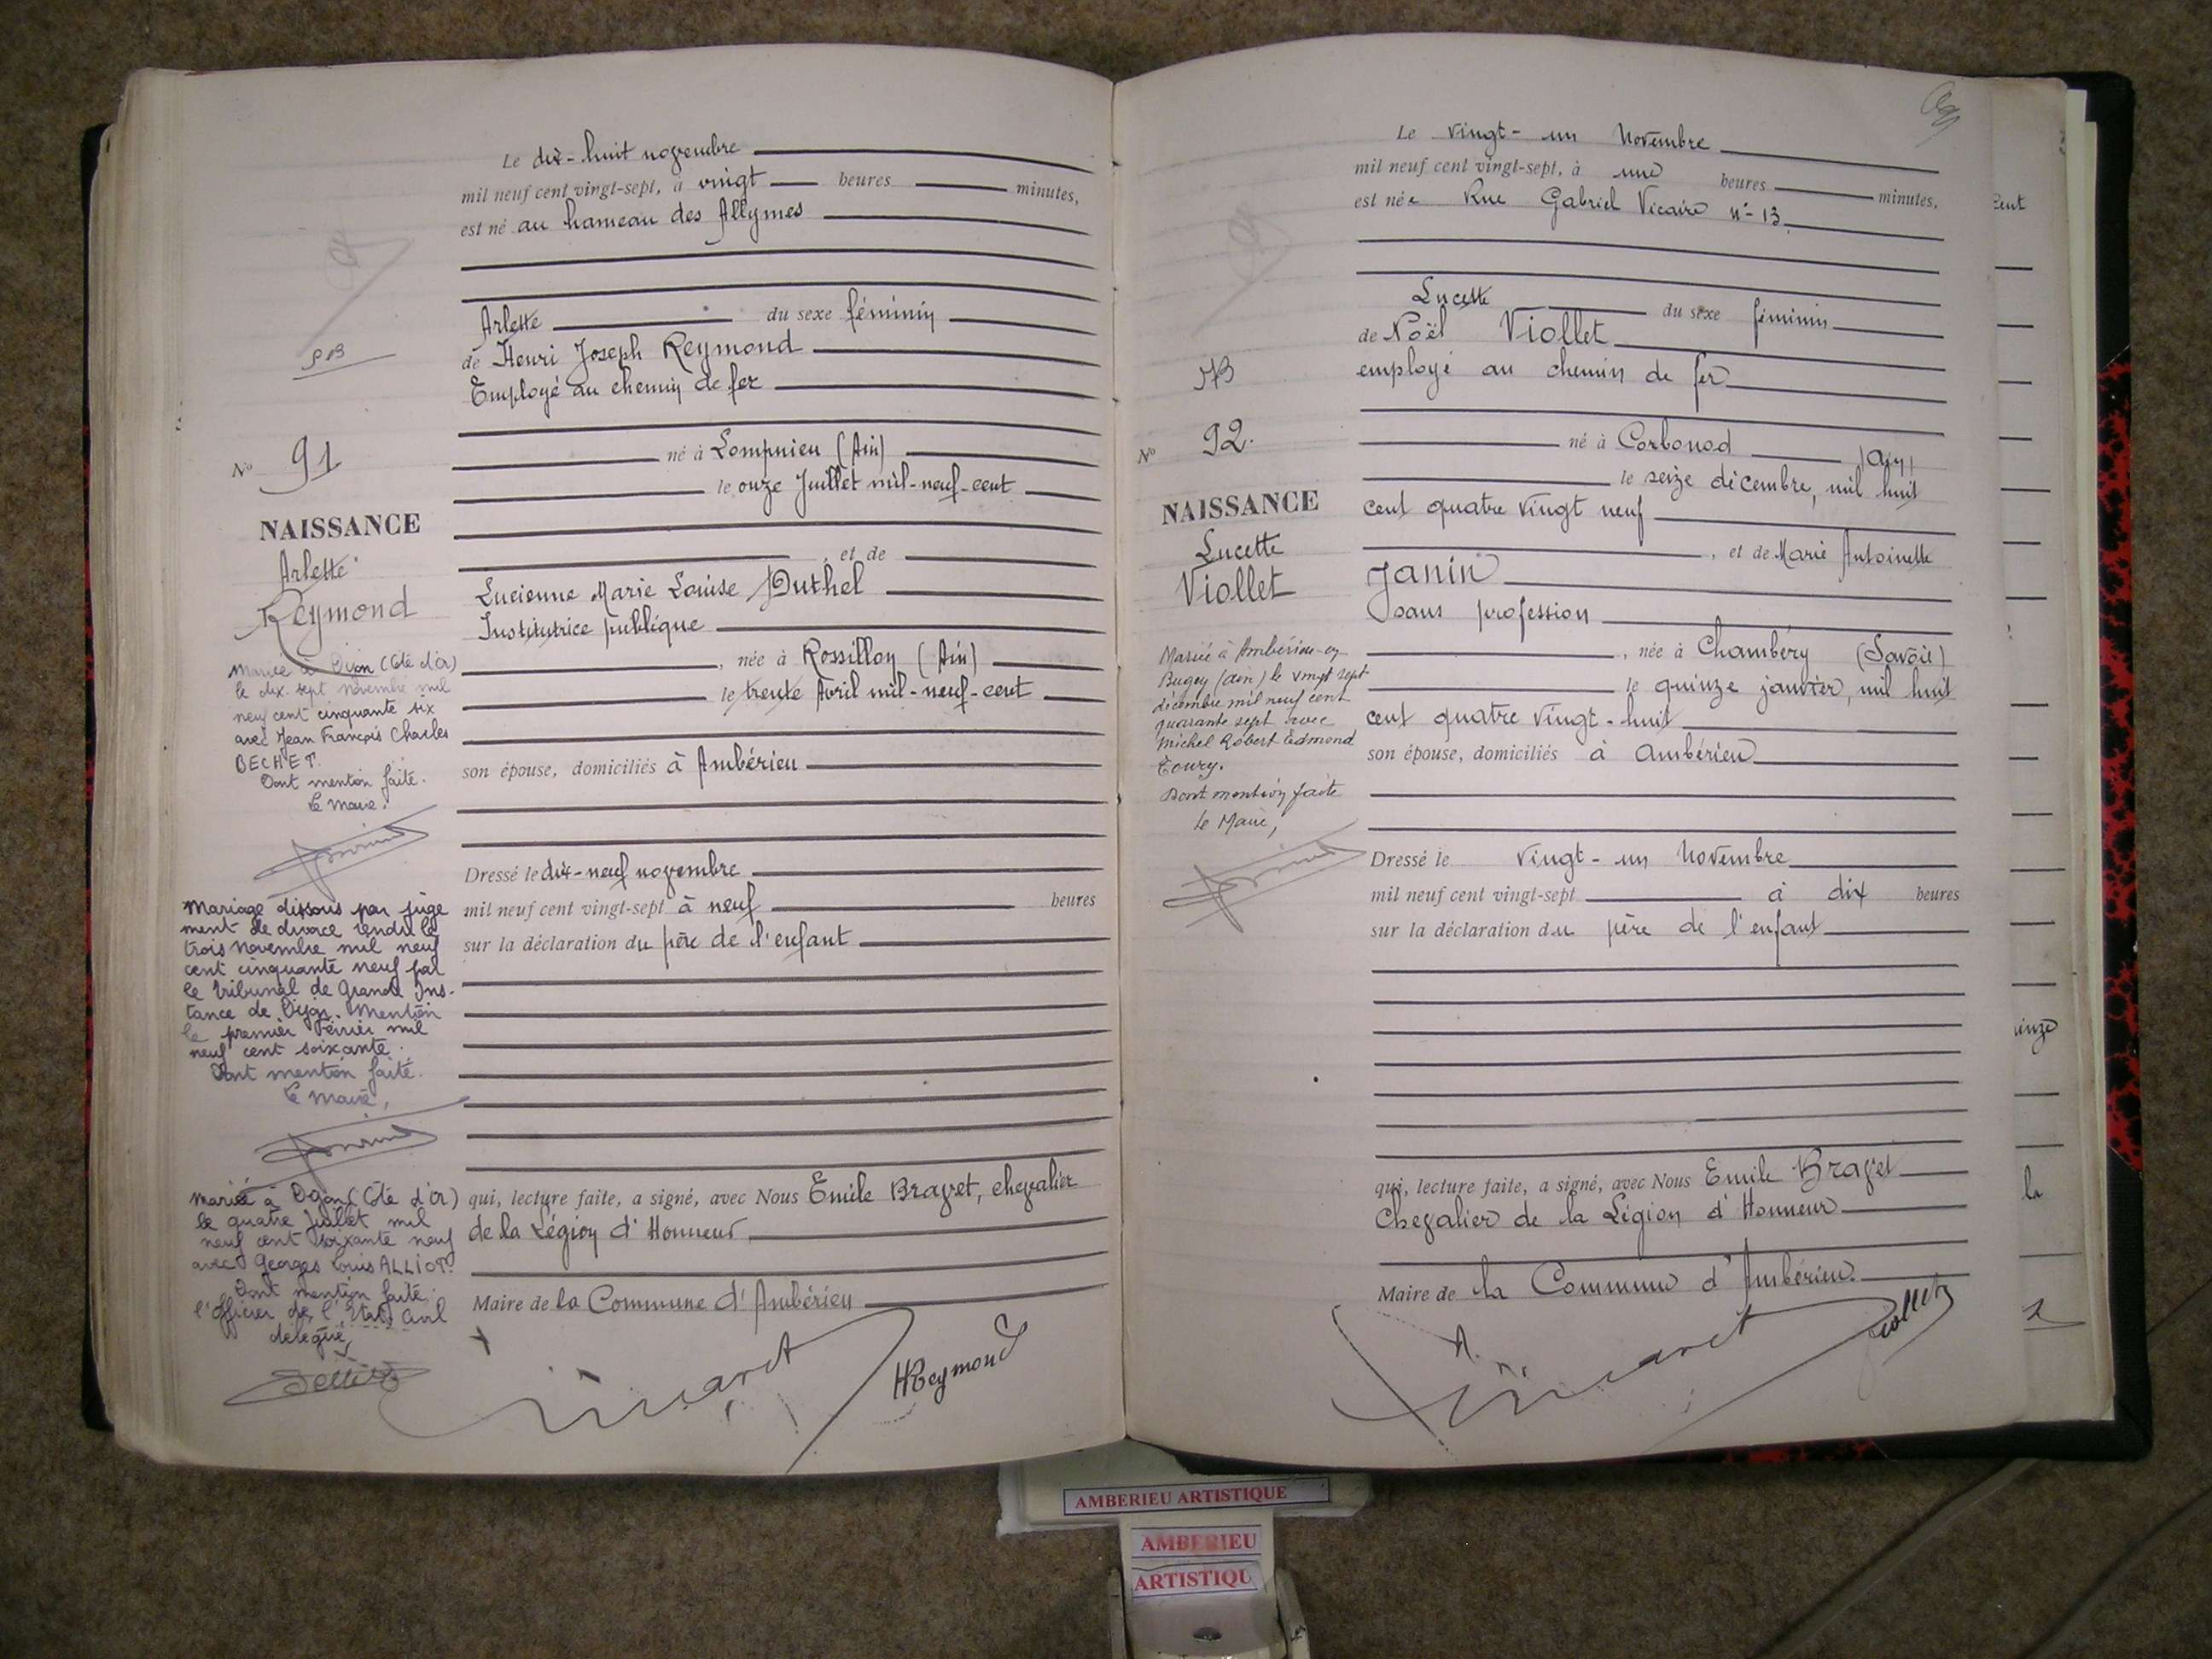 Le dix-huit novembre
mil neuf cent vingt-sept, à vingt heures minutes,
est né au hameau des Allymes
Arlette du sexe féminin
de Henri Joseph Reymond
Employé au chemin de fer
né à Lompnieu (Ain)
le onze Juillet mil-neuf-cent
, et de
Lucienne Marie Louise Duthel
Institutrice publique
, née à Rossillon (Ain)
le trente Avril mil-neuf-cent
son épouse, domiciliés à Ambérieu
Dressé le dix-neuf novembre
mil neuf cent vingt-sept à neuf heures
sur la déclaration du père de l'enfant
qui, lecture faite, a signé, avec Nous Emile Bravet, chevalier
de la Légion d'Honneur
Maire de la Commune d'Ambérieu
HReymond
No 91
NAISSANCE
Arlette
Reymond
Mariée à Dijon (Côte d'or)
le dix-sept novembre mil
neuf cent cinquante six
avec Jean François Charles
BECHET.
Dont mention faite.
Le Maire,
Mariage dissous par juge
ment de divorce rendu le
trois novembre mil neuf
cent cinquante neuf par
le tribunal de Grande Ins-
tance de Dijon. Mention
le premier Février mil
neuf cent soixante.
Dont mention faite.
Le Maire,
Mariée à Dijon (Côte d'or)
le quatre Juillet mil
neuf cent soixante neuf
avec Georges Louis ALLIOT.
Dont mention faite.
l'officier de l'Etat Civil
délégué,
Le vingt-un Novembre
mil neuf cent vingt-sept, à une heures minutes,
est née Rue Gabriel Vicaire n°-13
Lucette du sexe féminin
de Noël Viollet
employé au chemin de fer
né à Corbonod (Ain)
le seize décembre, mil huit
cent quatre vingt neuf
, et de Marie Antoinette
Janin
sans profession
, née à Chambéry (Savoie)
le quinze janvier, mil huit
cent quatre vingt-huit
son épouse, domiciliés à Ambérieu
Dressé le vingt-un Novembre
mil neuf cent vingt-sept à dix heures
sur la déclaration du père de l'enfant
qui, lecture faite, a signé, avec Nous Emile Bravet
Chevalier de la Légion d'Honneur
Maire de la Commune d'Ambérieu.
Viollet
No 92.
NAISSANCE
Lucette
Viollet
Mariée à Ambérieu-en
Bugey (Ain) le vingt sept
décembre mil neuf cent
quarante sept avec
Michel Robert Edmond
Dont mention faite
Le Maire,
cent
la
AMBERIEU ARTISTIQUE
AMBERIEU
ARTISTIQU